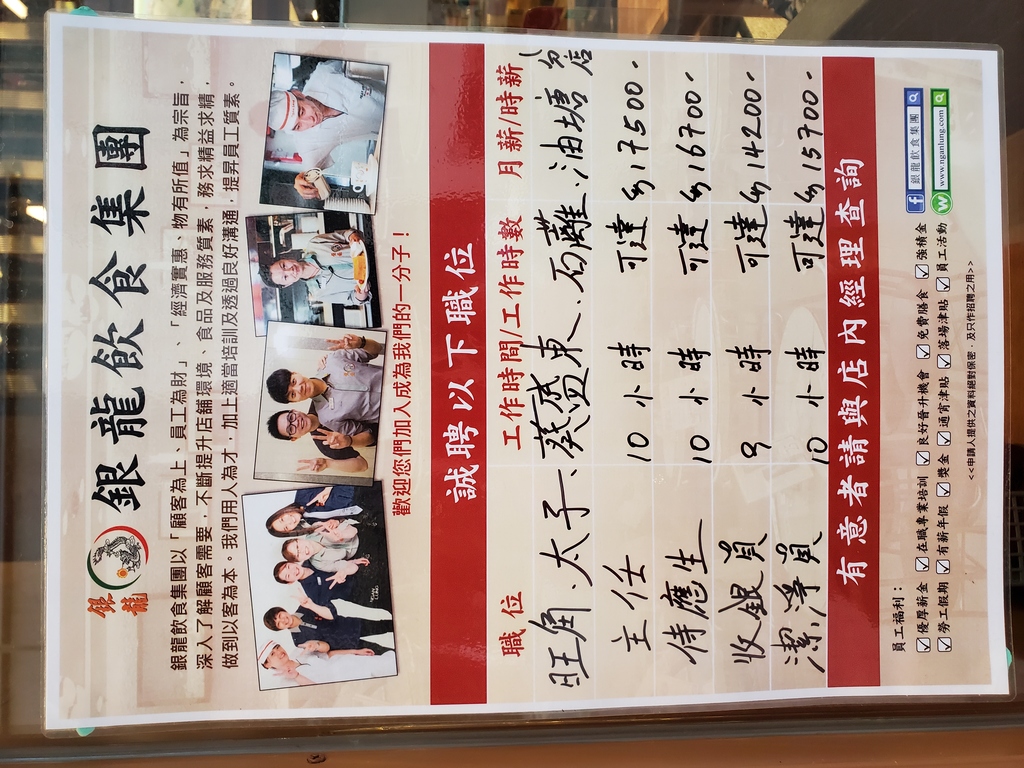 銀龍 銀龍飲食集團
銀龍飲食集團以「顧客為上、員工為財」、「經濟實惠、物有所值」為宗旨，
深入了解顧客需要，不斷提升店舖環境、食品及服務質素，務求精益求精，
做到以客為本。我們用人為才，加上適當培訓及透過良好溝通，提昇員工質素。
歡迎您們加入成為我們的一分子！
誠聘以下職位
職位 工作時間/工作時數 月薪/時薪
旺角、太子、葵盛東、石蔭、油塘分店
主任 10小時 可達$17500.
侍應生 10小時 可達$16700.
收銀員 9小時 可達$14200.
潔淨員 10小時 可達$15700.
有意者請與店內經理查詢
員工福利：
優厚薪金 在職專業培訓 良好晉升機會 免費膳食 強積金
勞工假期 有薪年假 獎金 通宵津貼 落場津貼 員工活動
銀龍飲食集團
www.nganlung.com
<<申請人提供之資料絕對保密，及只作招聘之用>>